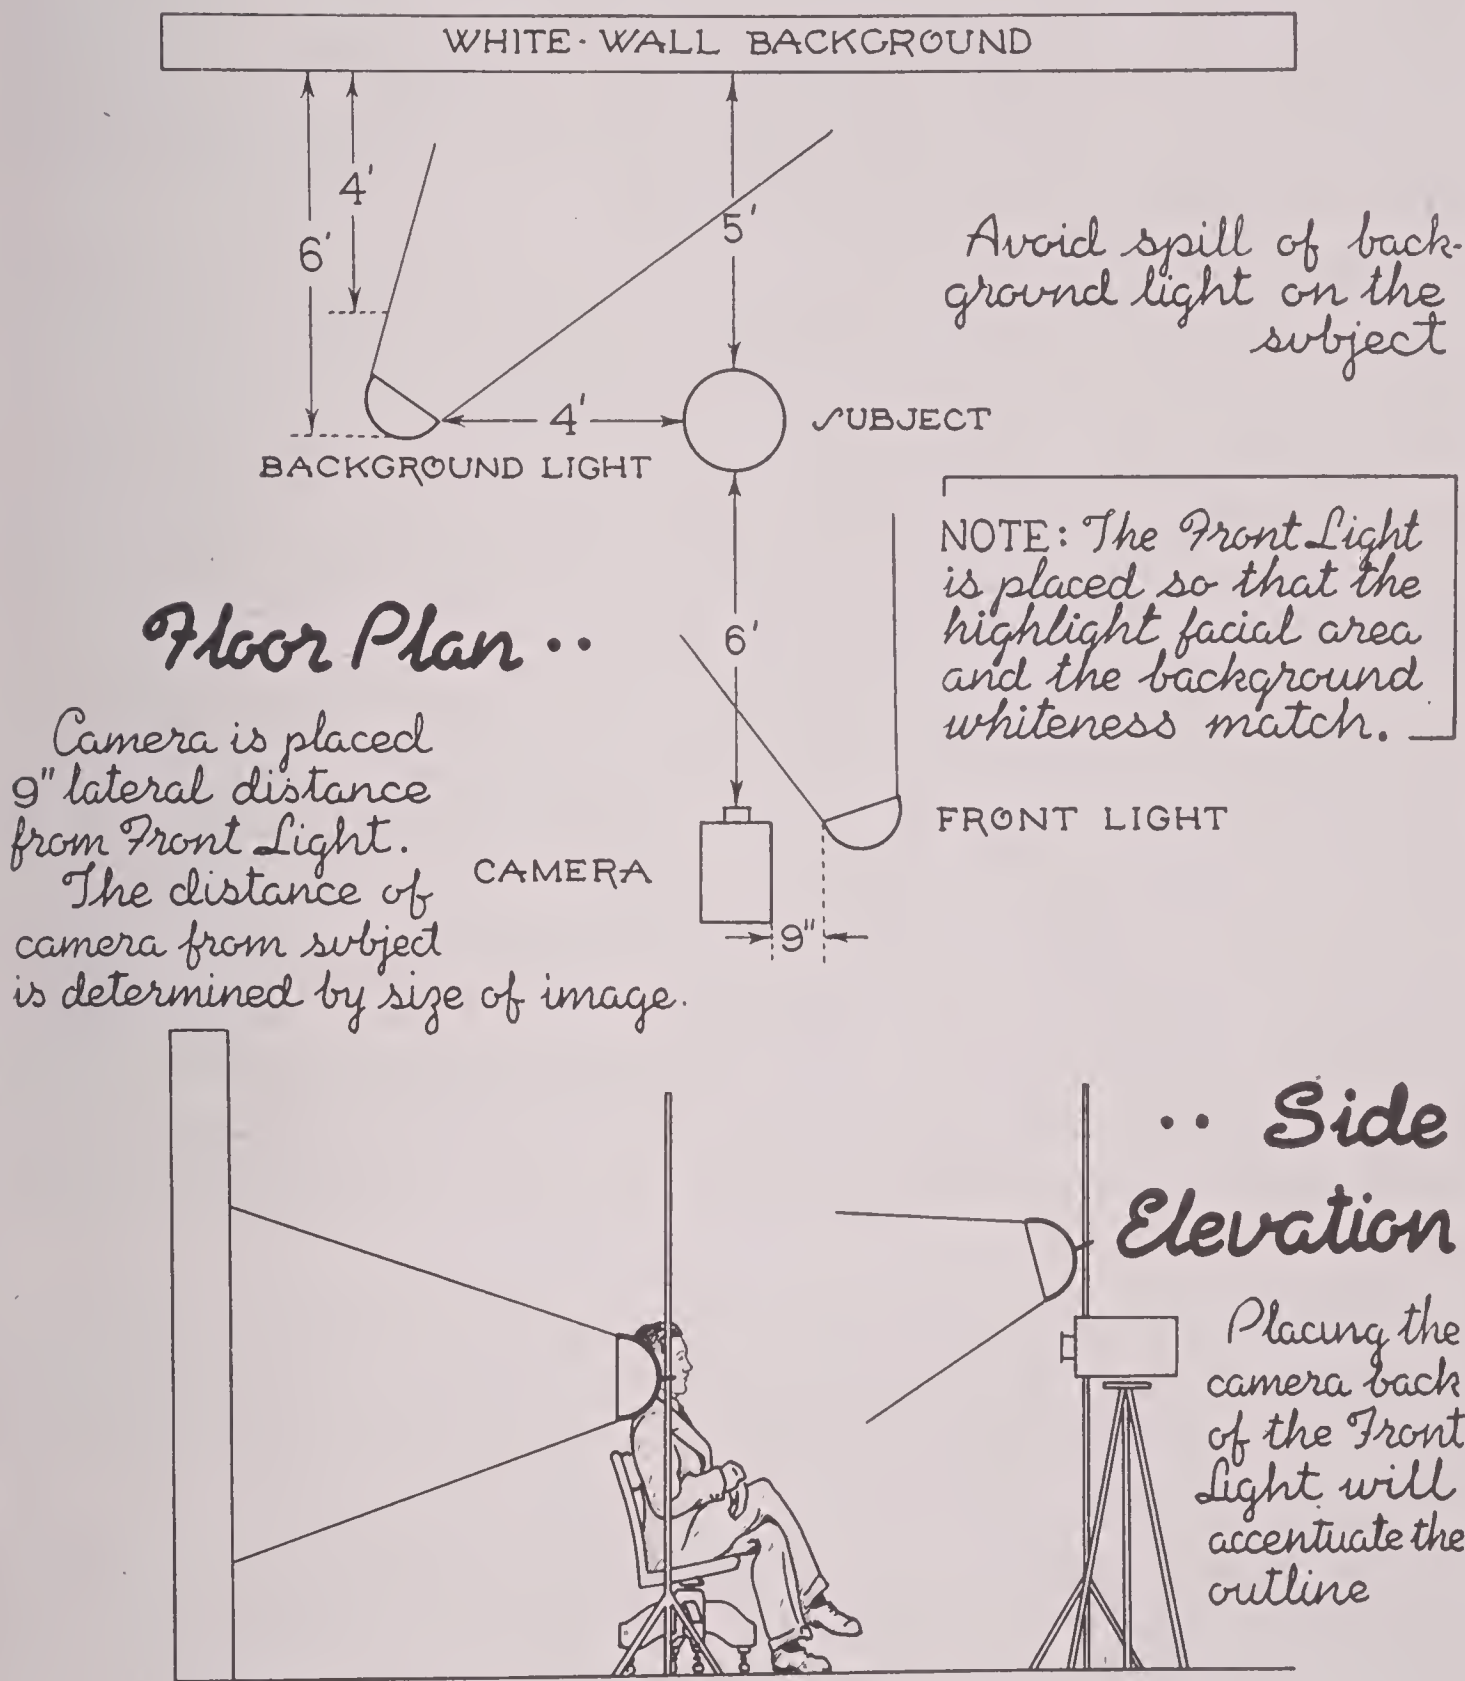 WHITE-WALL BACKGROUND
4'
6'
5'
Avoid spill of back-
ground light on the
subject
4'
SUBJECT
BACKGROUND LIGHT
NOTE: The Front Light
is placed so that the
highlight facial area
and the background
whiteness match.
6'
Floor Plan ..
Camera is placed
9" lateral distance
from Front Light.
The distance of
camera from subject
is determined by size of image.
FRONT LIGHT
CAMERA
9"
.. Side
Elevation
Placing the
camera back
of the Front
Light will
accentuate the
outline